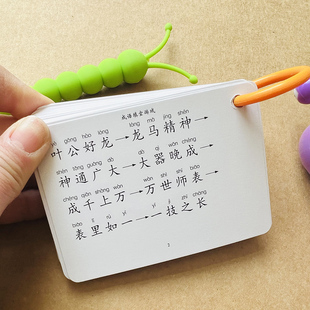 成语接龙游戏
yè gōng hào lóng lóng mǎ jīng shén
叶公好龙→龙马精神→
shén tōng guǎng dà dà qì wǎn chéng
神通广大→大器晚成→
chéng qiān shàng wàn wàn shì shī biǎo
成千上万→万世师表→
biǎo lǐ rú yī yī jì zhī cháng
表里如一→一技之长